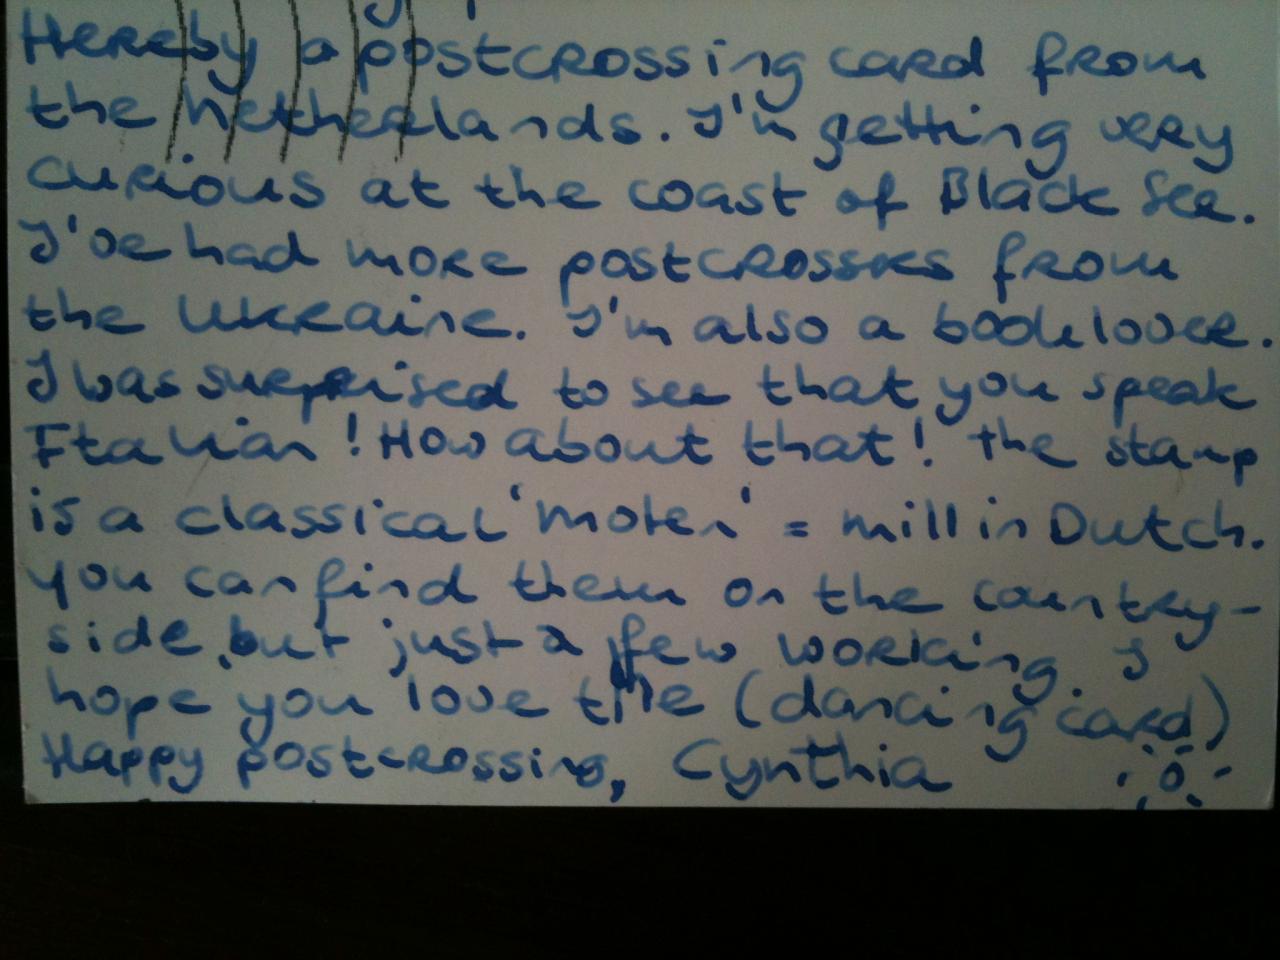 Hereby a postcrossing card from
the Netherlands. I'm getting very
curious at the coast of Black See.
I've had more from
the Ukraine. I'm also a booklover.
I was surprised to see that you speak
Italian! How about that! The stamp
is a classical 'molen' = mill in Dutch.
You can find them on the country-
side, but just a few working. I
hope you love the (dancing card)
Happy postcrossing, Cynthia